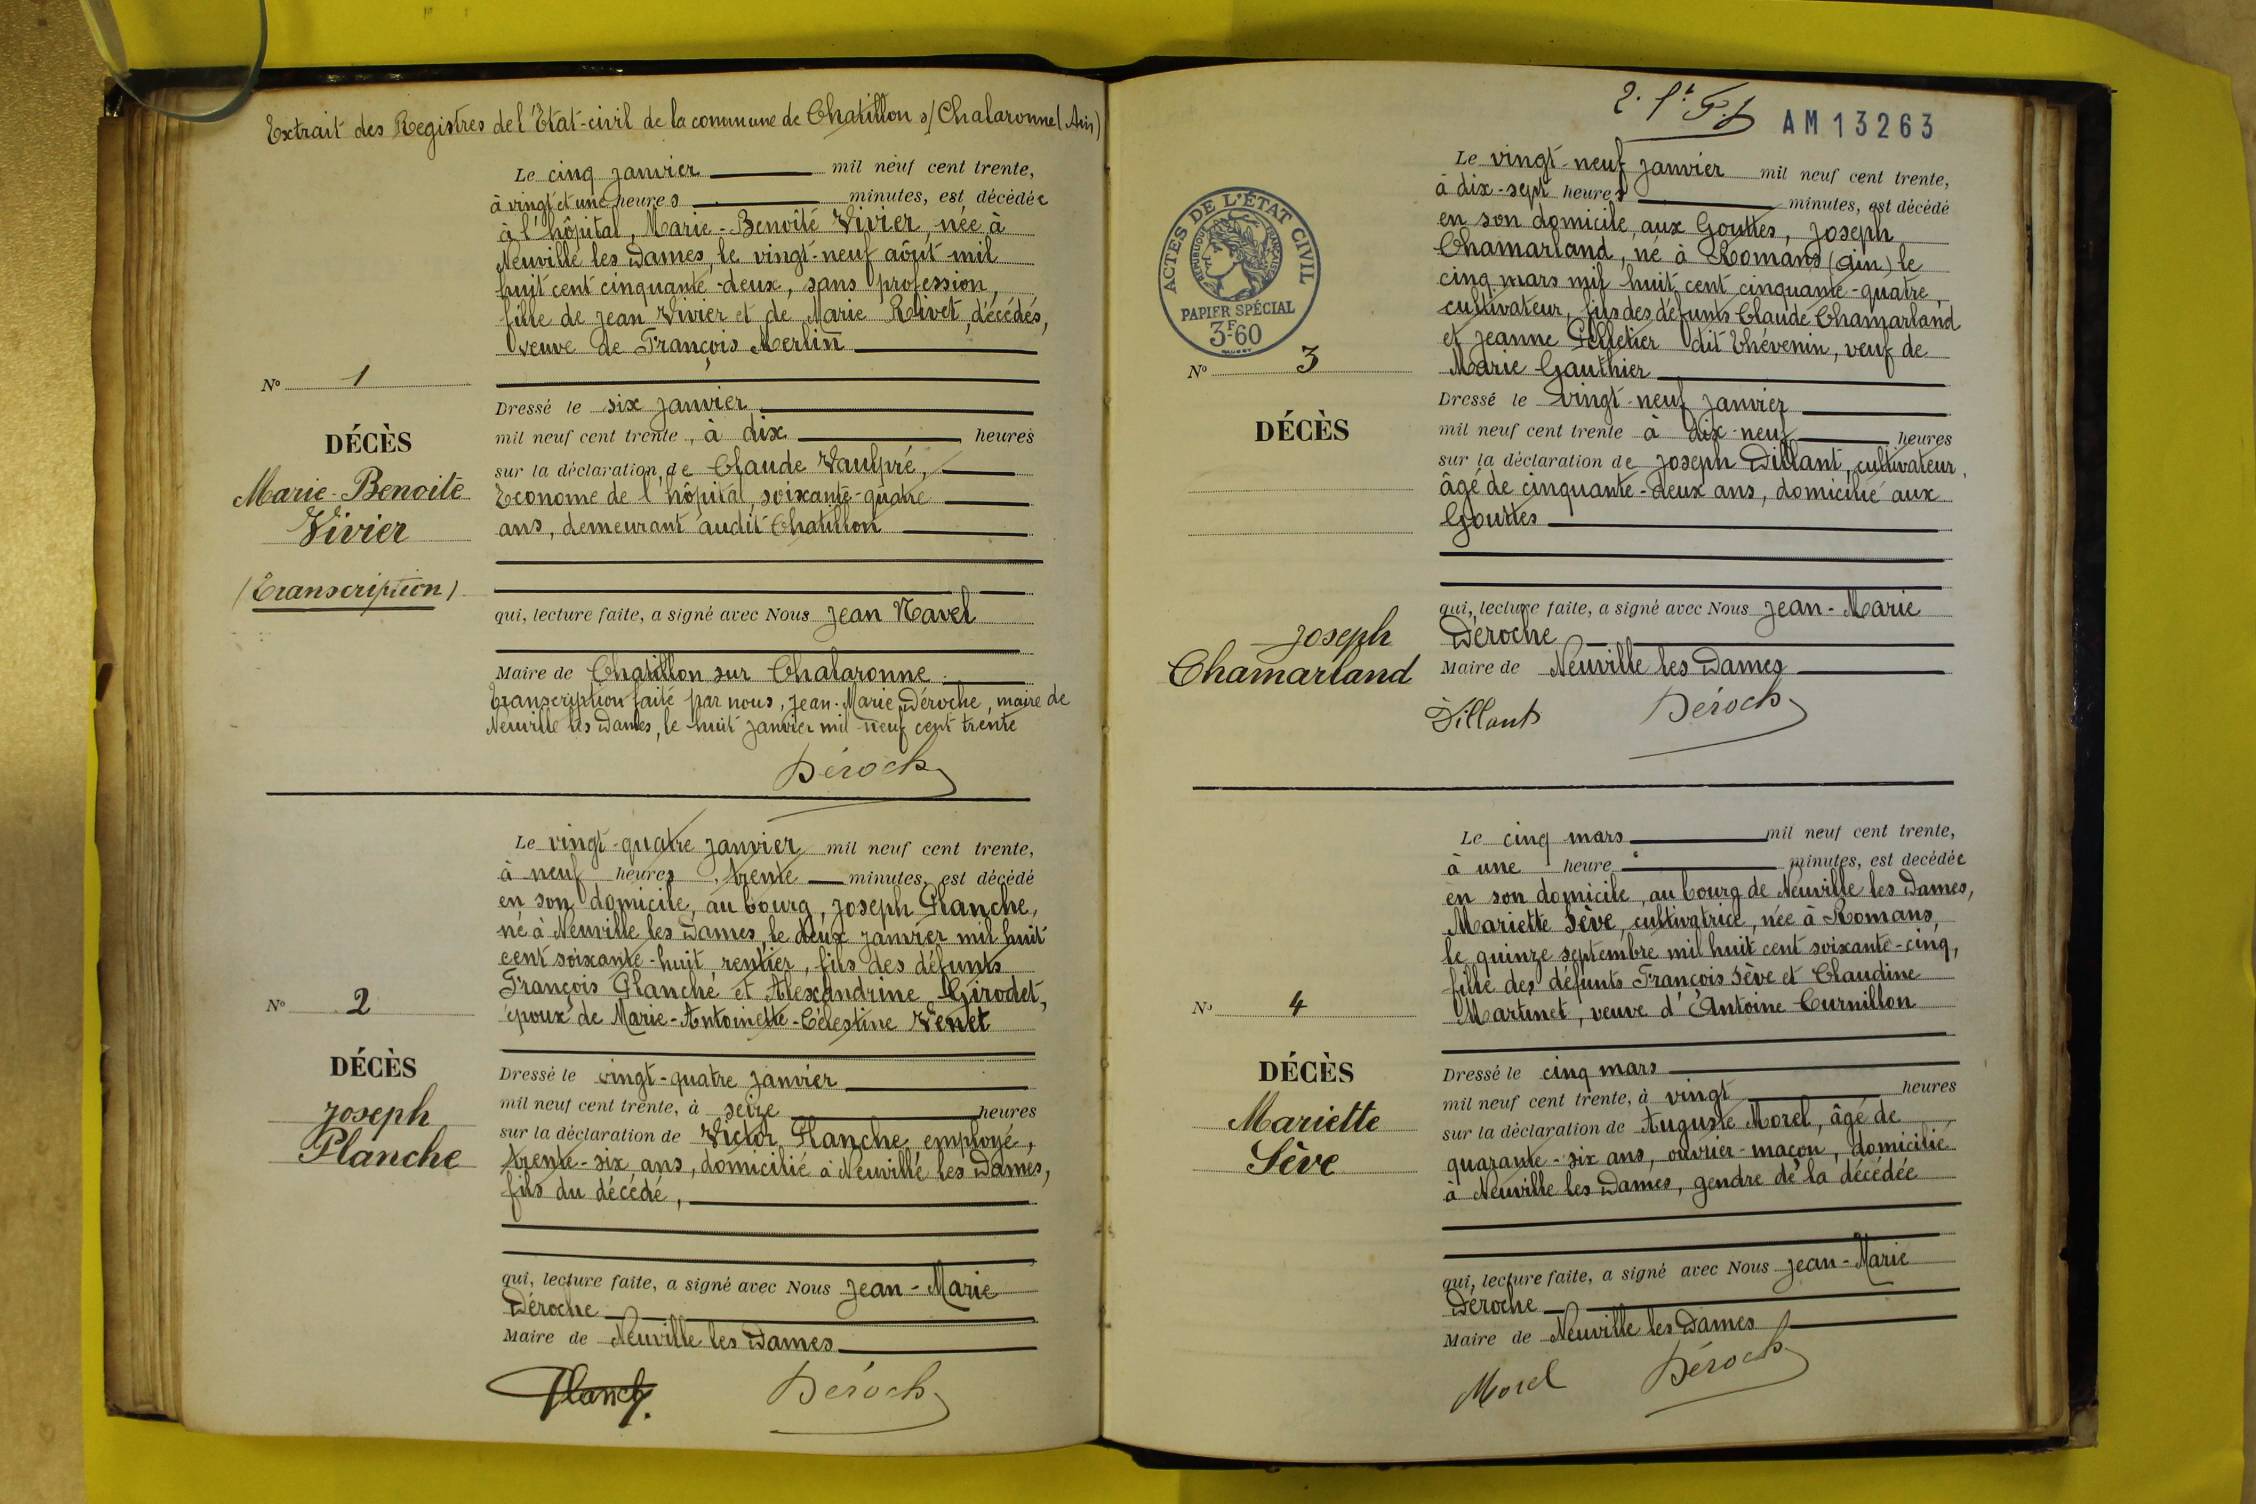 Extrait des Registres de l'Etat-civil de la commune de Chatillon s/ Chalaronne (Ain)
Le cinq janvier mil neuf cent trente,
à vingt et une heures minutes, est décédée
à l'hôpital, Marie-Benoîte Vivier, née à
Neuville les Dames, le vingt-neuf août mil
huit cent cinquante-deux, sans profession,
fille de Jean Vivier et de Marie Rivet, décédés,
veuve de François Merlin
N° 1
DÉCÈS
Marie-Benoite
Vivier
(Transcription)
Dressé le six janvier
mil neuf cent trente, à dix heures
sur la déclaration de Claude Vaulpré,
Econome de l'hôpital, soixante-quatre
ans, demeurant audit Chatillon
qui, lecture faite, a signé avec Nous Jean Navel
Maire de Chatillon sur Chalaronne
Transcription faite par nous, Jean-Marie Déroche, maire de
Neuville les Dames, le huit janvier mil neuf cent trente
Déroche
Le vingt-quatre janvier mil neuf cent trente,
à neuf heures trente minutes, est décédé
en son domicile, au bourg, Joseph Planche,
né à Neuville les Dames, le deux janvier mil huit
cent soixante-huit, rentier, fils des défunts
François Planche et Alexandrine Girodet,
époux de Marie-Antoinette-Célestine Venet
N° 2
DÉCÈS
Joseph
Planche
Dressé le vingt-quatre janvier
mil neuf cent trente, à seize heures
sur la déclaration de Victor Planche, employé,
trente-six ans, domicilié à Neuville les Dames,
fils du décédé,
qui, lecture faite, a signé avec Nous Jean-Marie
Déroche
Maire de Neuville les Dames
Planche Déroche
AM13263
ACTES DE L'ÉTAT CIVIL
RÉPUBLIQUE FRANÇAISE
PAPIER SPÉCIAL
3F60
Le vingt-neuf janvier mil neuf cent trente,
à dix-sept heures minutes, est décédé
en son domicile, aux Gouttes, Joseph
Chamarland, né à Romans (Ain) le
cinq mars mil huit cent cinquante-quatre,
cultivateur, fils des défunts Claude Chamarland
et Jeanne Pelletier dit Thévenin, veuf de
Marie Gauthier
N° 3
DÉCÈS
Joseph
Chamarland
Dressé le vingt-neuf janvier
mil neuf cent trente à dix-neuf heures
sur la déclaration de Joseph Dillant, cultivateur,
âgé de cinquante-deux ans, domicilié aux
Gouttes
qui, lecture faite, a signé avec Nous Jean-Marie
Déroche
Maire de Neuville les Dames
Dillant Déroche
Le cinq mars mil neuf cent trente,
à une heure minutes, est decédée
en son domicile, au bourg de Neuville les Dames,
Mariette Sève, cultivatrice, née à Romans,
le quinze septembre mil huit cent soixante-cinq,
fille des défunts François Sève et Claudine
Martinet, veuve d'Antoine Curnillon
N° 4
DÉCÈS
Mariette
Sève
Dressé le cinq mars
mil neuf cent trente, à vingt heures
sur la déclaration de Auguste Morel, âgé de
quarante-six ans, ouvrier-maçon, domicilié
à Neuville les Dames, gendre de la décédée
qui, lecture faite, a signé avec Nous Jean-Marie
Déroche
Maire de Neuville les Dames
Morel Déroche